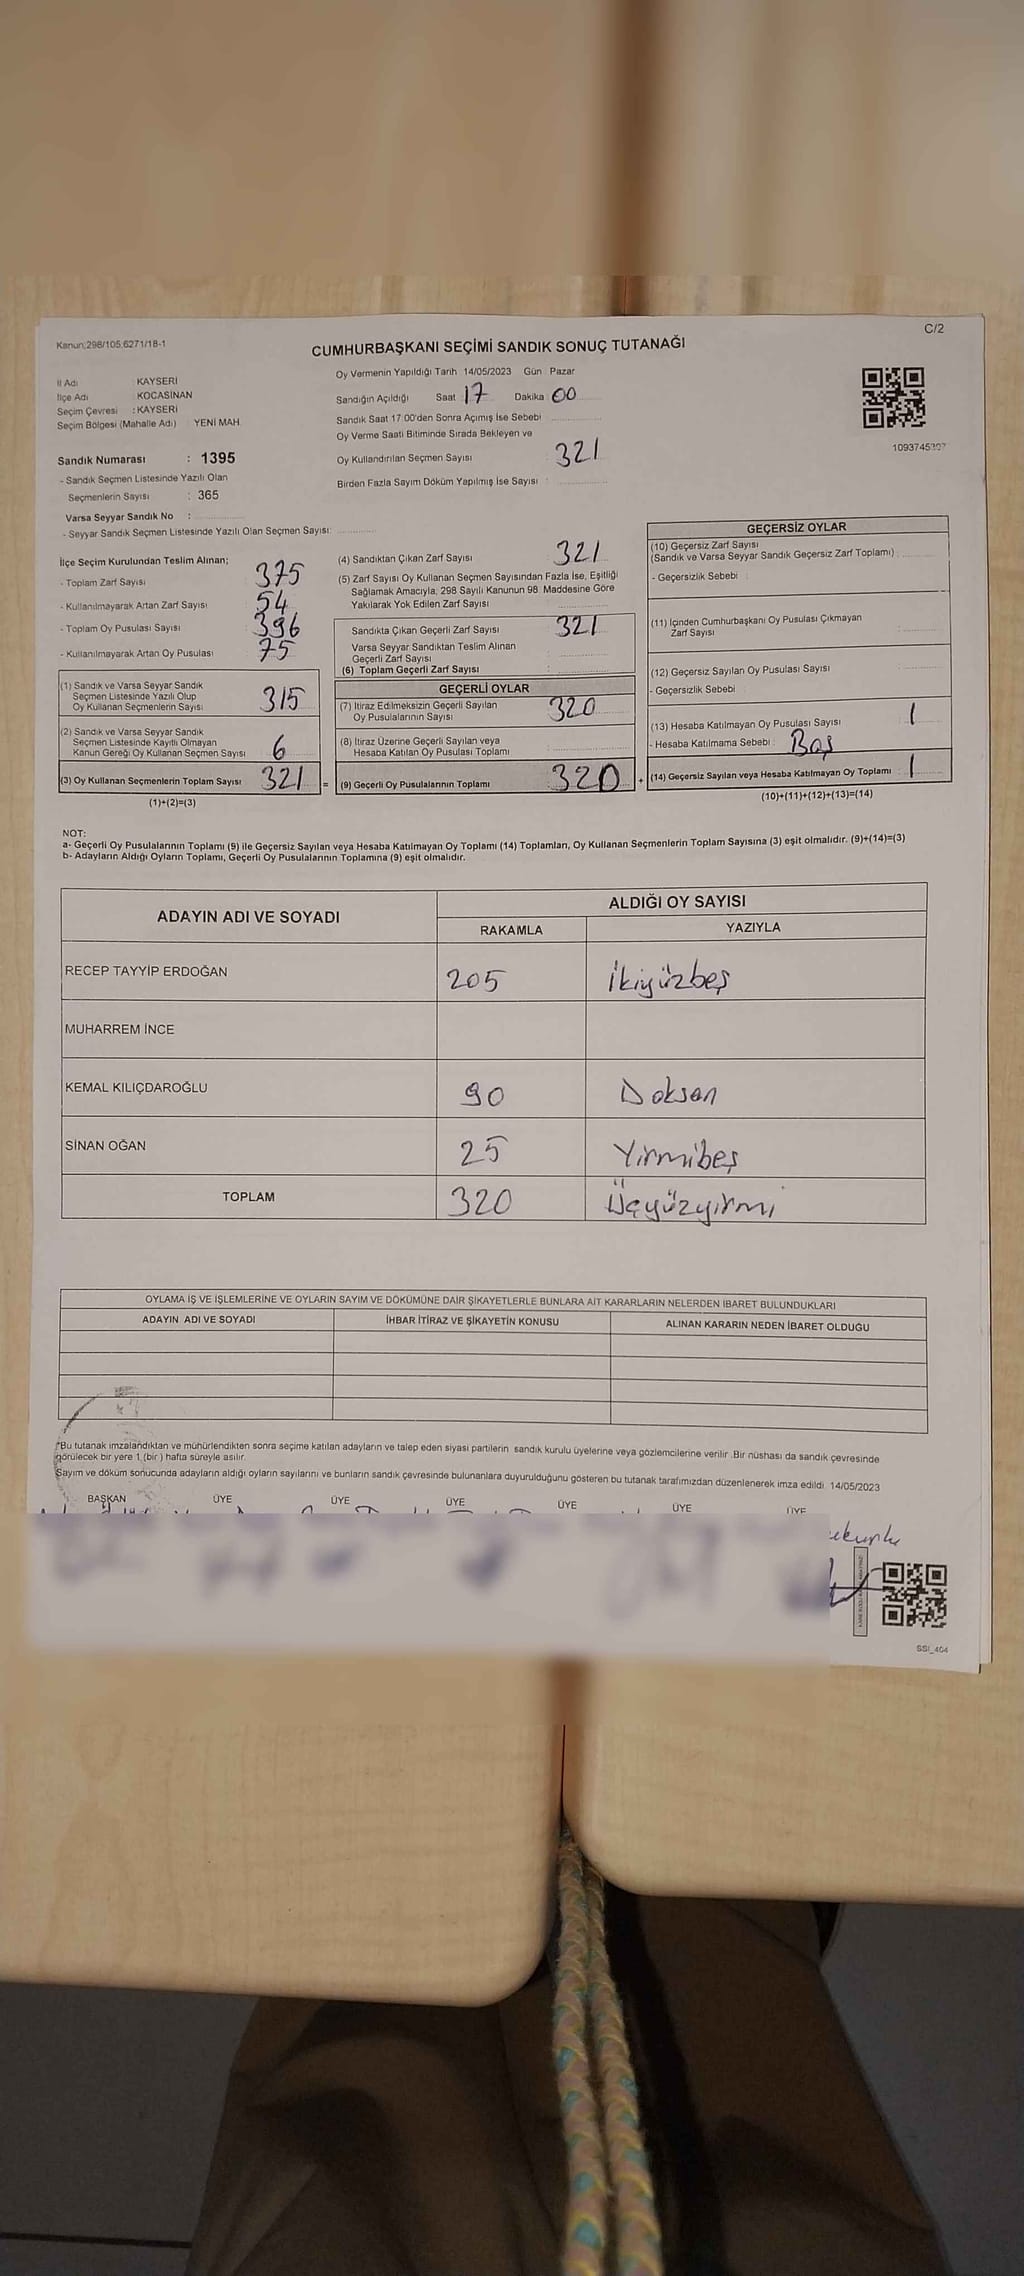 C/2
Kanun;298/105,6271/18-1
CUMHURBAŞKANI SEÇİMİ SANDIK SONUÇ TUTANAĞI
İl Adı : KAYSERİ
İlçe Adı : KOCASİNAN
Seçim Çevresi : KAYSERİ
Seçim Bölgesi (Mahalle Adı) YENİ MAH.
Sandık Numarası : 1395
- Sandık Seçmen Listesinde Yazılı Olan
Seçmenlerin Sayısı : 365
Varsa Seyyar Sandık No :
- Seyyar Sandık Seçmen Listesinde Yazılı Olan Seçmen Sayısı:
Oy Vermenin Yapıldığı Tarih 14/05/2023 Gün Pazar
Sandığın Açıldığı Saat 17 Dakika 00
Sandık Saat 17:00'den Sonra Açımış İse Sebebi
Oy Verme Saati Bitiminde Sırada Bekleyen ve
Oy Kullandırılan Seçmen Sayısı 321
Birden Fazla Sayım Döküm Yapılmış İse Sayısı :
İlçe Seçim Kurulundan Teslim Alınan;
- Toplam Zarf Sayısı 375
- Kullanılmayarak Artan Zarf Sayısı 54
- Toplam Oy Pusulası Sayısı 396
- Kullanılmayarak Artan Oy Pusulası 75
(1) Sandık ve Varsa Seyyar Sandık
Seçmen Listesinde Yazılı Olup
Oy Kullanan Seçmenlerin Sayısı 315
(2) Sandık ve Varsa Seyyar Sandık
Seçmen Listesinde Kayıtlı Olmayan
Kanun Gereği Oy Kullanan Seçmen Sayısı 6
(3) Oy Kullanan Seçmenlerin Toplam Sayısı 321 =
(1)+(2)=(3)
(4) Sandıktan Çıkan Zarf Sayısı 321
(5) Zarf Sayısı Oy Kullanan Seçmen Sayısından Fazla İse, Eşitliği
Sağlamak Amacıyla, 298 Sayılı Kanunun 98. Maddesine Göre
Yakılarak Yok Edilen Zarf Sayısı
Sandıkta Çıkan Geçerli Zarf Sayısı 321
Varsa Seyyar Sandıktan Teslim Alınan
Geçerli Zarf Sayısı
(6) Toplam Geçerli Zarf Sayısı
GEÇERLİ OYLAR
(7) İtiraz Edilmeksizin Geçerli Sayılan
Oy Pusulalarının Sayısı 320
(8) İtiraz Üzerine Geçerli Sayılan veya
Hesaba Katılan Oy Pusulası Toplamı
(9) Geçerli Oy Pusulalarının Toplamı 320 +
GEÇERSİZ OYLAR
(10) Geçersiz Zarf Sayısı
(Sandık ve Varsa Seyyar Sandık Geçersiz Zarf Toplamı)
- Geçersizlik Sebebi :
(11) İçinden Cumhurbaşkanı Oy Pusulası Çıkmayan
Zarf Sayısı
(12) Geçersiz Sayılan Oy Pusulası Sayısı
- Geçersizlik Sebebi
(13) Hesaba Katılmayan Oy Pusulası Sayısı 1
- Hesaba Katılmama Sebebi : Boş
(14) Geçersiz Sayılan veya Hesaba Katılmayan Oy Toplamı 1
(10)+(11)+(12)+(13)=(14)
NOT:
a- Geçerli Oy Pusulalarının Toplamı (9) ile Geçersiz Sayılan veya Hesaba Katılmayan Oy Toplamı (14) Toplamları, Oy Kullanan Seçmenlerin Toplam Sayısına (3) eşit olmalıdır. (9)+(14)=(3)
b- Adayların Aldığı Oyların Toplamı, Geçerli Oy Pusulalarının Toplamına (9) eşit olmalıdır.
ADAYIN ADI VE SOYADI ALDIĞI OY SAYISI
RAKAMLA YAZIYLA
RECEP TAYYİP ERDOĞAN 205 İkiyüzbeş
MUHARREM İNCE
KEMAL KILIÇDAROĞLU 90 Doksan
SİNAN OĞAN 25 Yirmibeş
TOPLAM 320 Üçyüzyirmi
OYLAMA İŞ VE İŞLEMLERİNE VE OYLARIN SAYIM VE DÖKÜMÜNE DAİR ŞİKAYETLERLE BUNLARA AİT KARARLARIN NELERDEN İBARET BULUNDUKLARI
ADAYIN ADI VE SOYADI İHBAR İTİRAZ VE ŞİKAYETİN KONUSU ALINAN KARARIN NEDEN İBARET OLDUĞU
*Bu tutanak imzalandıktan ve mühürlendikten sonra seçime katılan adayların ve talep eden siyasi partilerin sandık kurulu üyelerine veya gözlemcilerine verilir. Bir nüshası da sandık çevresinde
görülecek bir yere 1 (bir ) hafta süreyle asılır.
Sayım ve döküm sonucunda adayların aldığı oyların sayılarını ve bunların sandık çevresinde bulunanlara duyurulduğunu gösteren bu tutanak tarafımızdan düzenlenerek imza edildi. 14/05/2023
BAŞKAN ÜYE ÜYE ÜYE ÜYE ÜYE ÜYE
SSI_404